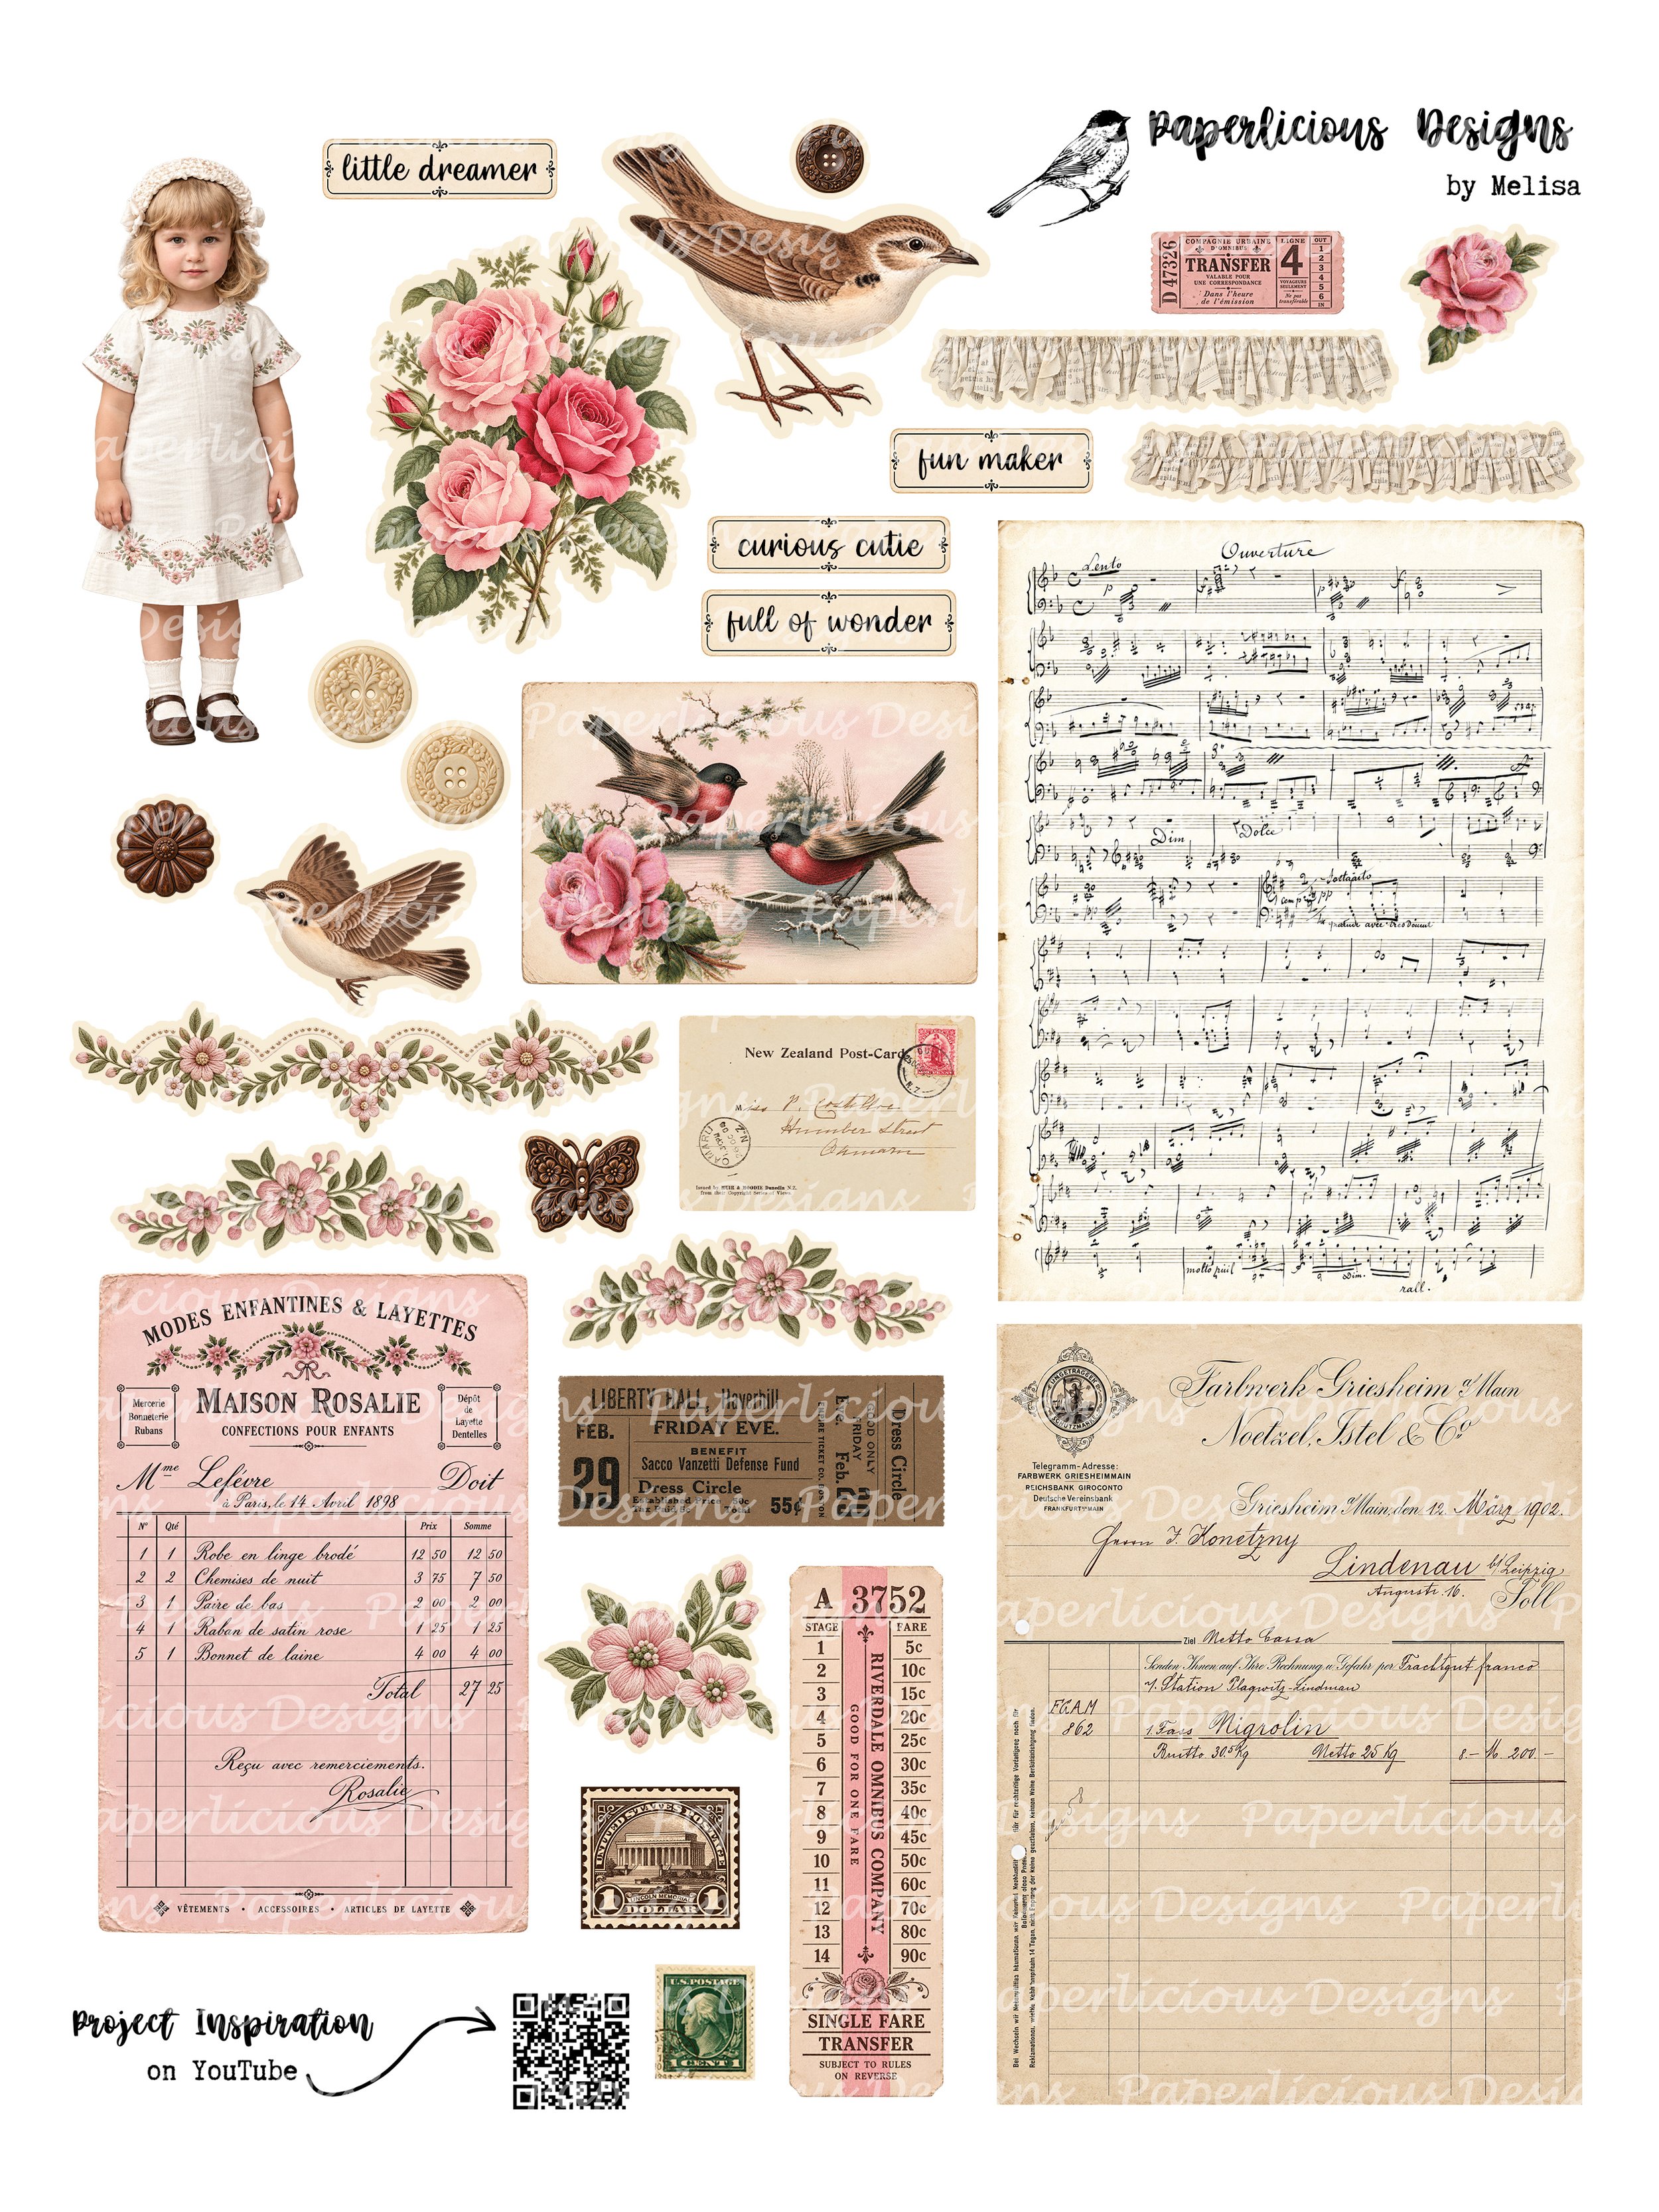 Paperlicious Designs
by Melisa
little dreamer
COMPAGNIE URBAINE
D'OMNIBUS
TRANSFER
VALABLE POUR
UNE CORRESPONDANCE
Dans l'heure
de l'émission
D 47326
LIGNE
4
VOYAGEURS
SEULEMENT
Ne pas
transférable
OUT
1
2
3
4
5
6
IN
fun maker
curious cutie
full of wonder
Ouverture
Lento
Dim
Dolce
molto
Dim.
rall.
New Zealand Post-Card
Miss P.
Humber Street
Oamaru
Issued by MUIR & MOODIE Dunedin N.Z.
from their Copyright Series of Views.
MODES ENFANTINES & LAYETTES
Mercerie
Bonneterie
Rubans
MAISON ROSALIE
CONFECTIONS POUR ENFANTS
Dépôt
de
Layette
Dentelles
Mme Lefévre Doit
à Paris, le 14 Avril 1898
No Qté Prix Somme
1 1 Robe en linge brodé 12 50 12 50
2 2 Chemises de nuit 3 75 7 50
3 1 Paire de bas 2 00 2 00
4 1 Raban de satin rose 1 25 1 25
5 1 Bonnet de laine 4 00 4 00
Total 27 25
Reçu avec remerciements.
Rosalie
VÊTEMENTS • ACCESSOIRES • ARTICLES DE LAYETTE
LIBERTY HALL, Haverhill
FEB.
29
FRIDAY EVE.
BENEFIT
Sacco Vanzetti Defense Fund
Dress Circle
Established Price 50c
55¢
GOOD ONLY
FRIDAY
Eve. Feb.
29
Dress Circle
A 3752
STAGE FARE
1 5c
2 10c
3 15c
4 20c
5 25c
6 30c
7 35c
8 40c
9 45c
10 50c
11 60c
12 70c
13 80c
14 90c
RIVERDALE OMNIBUS COMPANY
GOOD FOR ONE FARE
SINGLE FARE
TRANSFER
SUBJECT TO RULES
ON REVERSE
UNITED STATES POSTAGE
LINCOLN MEMORIAL
1 DOLLAR 1
U.S. POSTAGE
1 CENT 1
Farbwerk Griesheim a/Main
Noetzel, Istel & Co
EINGETRAGENE
SCHUTZMARKE
Telegramm-Adresse:
FARBWERK GRIESHEIMMAIN
REICHSBANK GIROCONTO
Deutsche Vereinsbank
FRANKFURT a/MAIN
Griesheim a/Main, den 12. März 1902.
Herrn J. Konetzny
Lindenau b/Leipzig
Angerstr. 16. Soll
Ziel Netto Cassa
Senden Ihnen auf Ihre Rechnung u. Gefahr per Frachtgut franco
Station Plagwitz-Lindenau
862 1 Fass Nigrolin
Brutto 30.5 Kg Netto 25 Kg 8.- M. 200.-
Project Inspiration
on YouTube
Paperlicious Designs